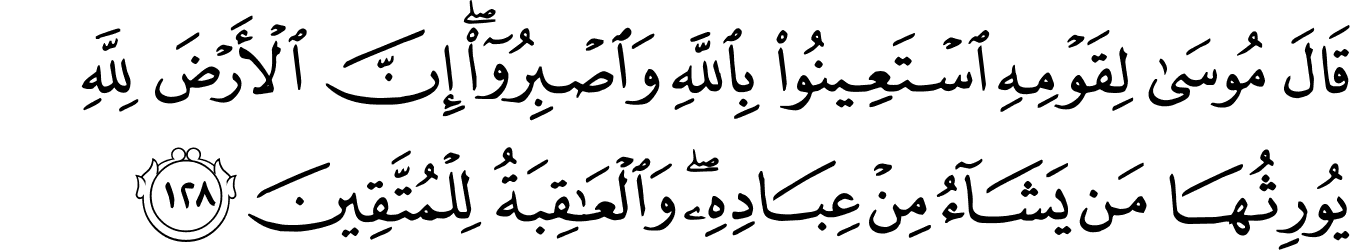 قَالَ مُوسَىٰ لِقَوْمِهِ ٱسْتَعِينُوا۟ بِٱللَّهِ وَٱصْبِرُوٓا۟ ۖ إِنَّ ٱلْأَرْضَ لِلَّهِ
يُورِثُهَا مَن يَشَآءُ مِنْ عِبَادِهِۦ ۖ وَٱلْعَـٰقِبَةُ لِلْمُتَّقِينَ ١٢٨